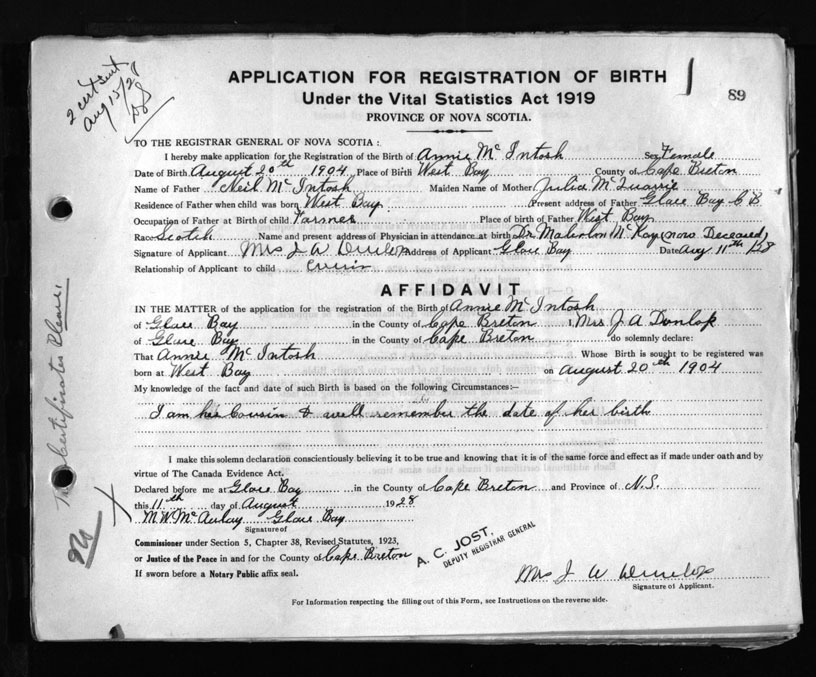 2 cert sent
Aug 15/28
APPLICATION FOR REGISTRATION OF BIRTH
Under the Vital Statistics Act 1919
89
PROVINCE OF NOVA SCOTIA.
TO THE REGISTRAR GENERAL OF NOVA SCOTIA:
I hereby make application for the Registration of the Birth of Annie Mc Intosh Sex Female
Date of Birth August 20th 1904 Place of Birth West Bay County of Cape Breton
Name of Father Neil Mc Intosh Maiden Name of Mother Julia Mc Quarrie
Residence of Father when child was born West Bay Present address of Father Glace Bay C B
Occupation of Father at Birth of child Farmer Place of birth of Father West Bay
Race Scotch Name and present address of Physician in attendance at birth Dr Malcolm Mc Kay (now Deceased)
Signature of Applicant Mrs J A Dunlop Address of Applicant Glace Bay Date Aug 11th 1928
Relationship of Applicant to child cousin
AFFIDAVIT
IN THE MATTER of the application for the registration of the Birth of Annie Mc Intosh
of Glace Bay in the County of Cape Breton I, Mrs J A Dunlop
of Glace Bay in the County of Cape Breton do solemnly declare:
That Annie Mc Intosh Whose Birth is sought to be registered was
born at West Bay on August 20th 1904
My knowledge of the fact and date of such Birth is based on the following Circumstances:—
I am her Cousin & well remember the date of her birth
I make this solemn declaration conscientiously believing it to be true and knowing that it is of the same force and effect as if made under oath and by
virtue of The Canada Evidence Act.
Declared before me at Glace Bay in the County of Cape Breton and Province of N.S.
this 11th day of August 1928
M W McAulay Glace Bay
Signature of
Commissioner under Section 5, Chapter 38, Revised Statutes, 1923,
or Justice of the Peace in and for the County of Cape Breton
If sworn before a Notary Public affix seal.
A. C. JOST.
DEPUTY REGISTRAR GENERAL
Mrs J A Dunlop
Signature of Applicant.
For Information respecting the filling out of this Form, see Instructions on the reverse side.
Certificates Please.